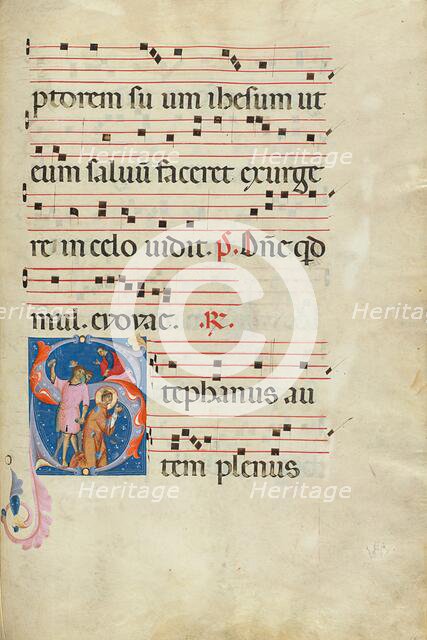 ptorem su um ihesum ut
eum saluū faceret exurge
re in celo uidit. p̄. Dn̄e qd
mul. evovae. R.
Stephanus au
tem plenus
Heritage
Heritage
Heritage
Heritage
Heritage
Heritage
Heritage
Heritage
©